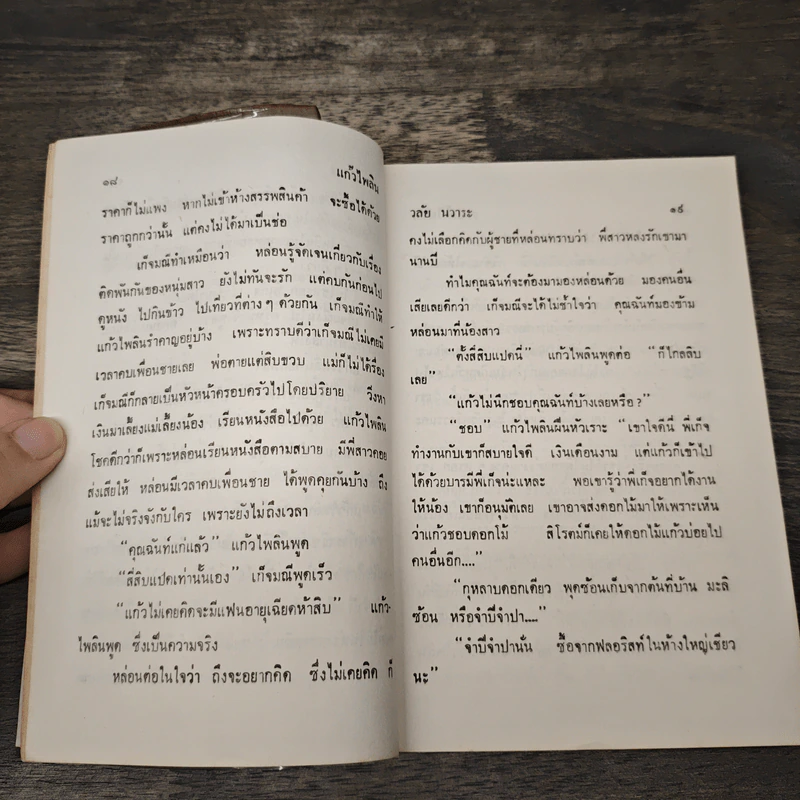 ๑๘
แก้วไพลิน
ราคาก็ไม่แพง หากไม่เข้าห้างสรรพสินค้า จะซื้อได้ด้วย
ราคาถูกกว่านั้น แต่คงไม่ได้มาเป็นช่อ
เก็จมณีทำเหมือนว่า หล่อนรู้จัดเจนเกี่ยวกับเรื่อง
ติดพันกันของหนุ่มสาว ยังไม่ทันจะรัก แต่คบกันก่อนไป
ดูหนัง ไปกินข้าว ไปเที่ยวที่ต่างๆ ด้วยกัน เก็จมณีทำให้
แก้วไพลินรำคาญอยู่บ้าง เพราะทราบดีว่าเก็จมณีไม่เคยมี
เวลาคบเพื่อนชายเลย พ่อตายแต่สิบขวบ แม่ก็ไม่ได้เรื่อง
เก็จมณีก็กลายเป็นหัวหน้าครอบครัวไปโดยปริยาย วิ่งหา
เงินมาเลี้ยงแม่เลี้ยงน้อง เรียนหนังสือไปด้วย แก้วไพลิน
โชคดีกว่าก็เพราะหล่อนเรียนหนังสือตามสบาย มีพี่สาวคอย
ส่งเสียให้ หล่อนมีเวลาคบเพื่อนชาย ได้พูดคุยกันบ้าง ถึง
แม้จะไม่จริงจังกับใคร เพราะยังไม่ถึงเวลา
“คุณฉันท์แก่แล้ว” แก้วไพลินพูด
“สี่สิบแปดเท่านั้นเอง” เก็จมณีพูดเร็ว
“แก้วไม่เคยคิดจะมีแฟนอายุเฉียดห้าสิบ” แก้ว-
ไพลินพูด ซึ่งเป็นความจริง
หล่อนต่อในใจว่า ถึงจะอยากคิด ซึ่งไม่เคยคิด ก็
วลัย นวาระ
๑๙
คงไม่เลือกคิดกับผู้ชายที่หล่อนทราบว่า พี่สาวหลงรักเขามา
นานปี
ทำไมคุณฉันท์จะต้องมามองหล่อนด้วย มองคนอื่น
เสียเลยดีกว่า เก็จมณีจะได้ไม่ช้ำใจว่า คุณฉันท์มองข้าม
หล่อนมาที่น้องสาว
“ตั้งสี่สิบแปดนี่” แก้วไพลินพูดต่อ “ก็ไกลลิบ
เลย”
“แก้วไม่นึกชอบคุณฉันท์บ้างเลยหรือ?”
“ชอบ” แก้วไพลินฝืนหัวเราะ “เขาใจดีนี่ พี่เก็จ
ทำงานกับเขาก็สบายใจดี เงินเดือนงาม แต่แก้วก็เข้าไป
ได้ด้วยบารมีพี่เก็จน่ะแหละ พอเขารู้ว่าพี่เก็จอยากได้งาน
ให้น้อง เขาก็อนุมัติเลย เขาอาจส่งดอกไม้มาให้เพราะเห็น
ว่าแก้วชอบดอกไม้ สิโรตม์ก็เคยให้ดอกไม้แก้วบ่อยไป
คนอื่นอีก....”
“กุหลาบดอกเดียว พุดซ้อนเก็บจากต้นที่บ้าน มะลิ
ซ้อน หรือจำปีจำปา....”
“จำปีจำปานั่น ซื้อจากฟลอริสท์ในห้างใหญ่เชียว
นะ”